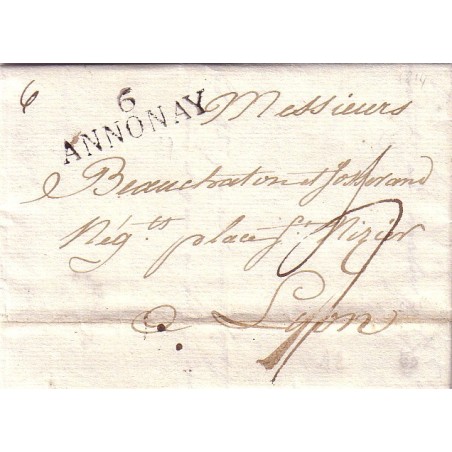 6
6
ANNONAY
Messieurs
Beauchaton et Josserand
Nég.ts place St. Nizier
a Lyon